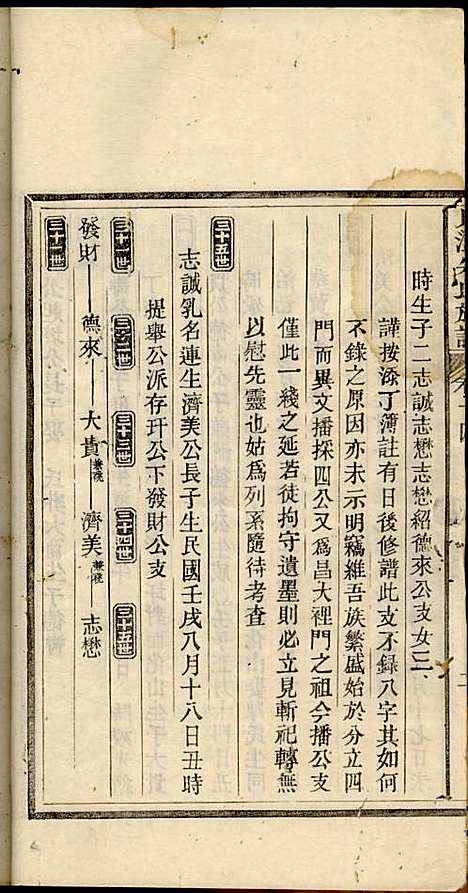 時生子二志誠志懋志懋紹德來公支女三
謹按添丁簿註有日後修譜此支不錄八字其如何
不錄之原因亦未示明竊維吾族繁盛始於分立四
門而異文播探四公又爲昌大裡門之祖今播公支
僅此一綫之延若徒拘守遺墨則必立見斬祀轉無
以慰先靈也姑爲列系隨待考查
三十五世
志誠乳名連生濟美公長子生民國壬戌八月十八日丑時
提舉公派存玕公下發財公支
三十一世 三十二世 三十三世 三十四世 三十五世
發財 德來 大貴兼祧 濟美兼祧 志懋
三十一世